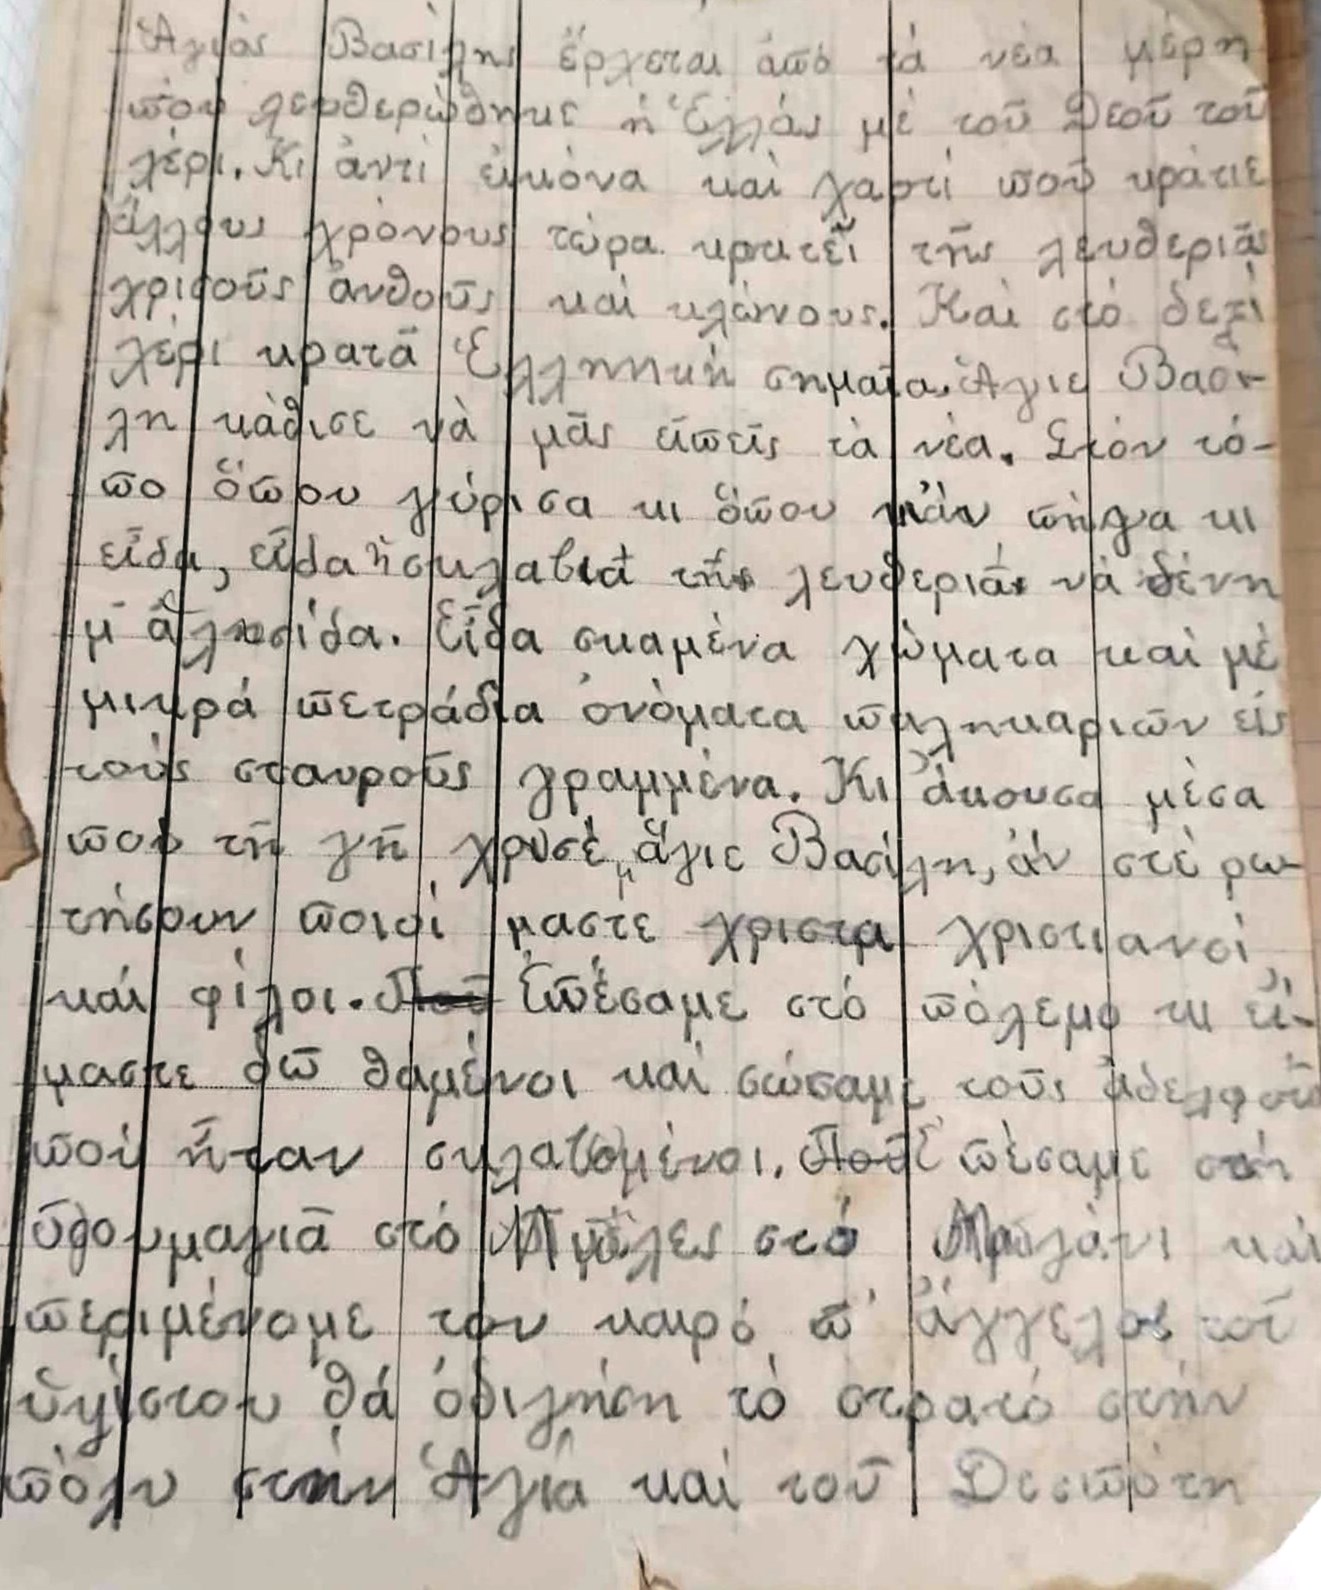 Ἁγιὸς Βασίλης ἔρχεται ἀπό τά νέα μέρη
πού λευθερώθηκε ἡ Ἑλλάς μέ τοῦ Θεοῦ τοῦ
χέρι. Κι ἀντί εἰκόνα καί χαρτί ποῦ κράτιε
ἄλλους χρόνους τώρα κρατεῖ τῆς λευθεριᾶς
χρισοῦς ἀνθοῦς καί κλώνους. Καί στό δεξί
χέρι κρατᾶ Ἑλληνική σημαία. Ἅγιε Βασί-
λη κάθισε νά μᾶς εἰπεῖς τὰ νέα. Στόν τό-
πο ὅπου γύρισα κι ὅπου κἄν πῆγα κι
εἶδα, εἶδα ἡ σκλαβιά τῆς λευθεριᾶς νά δένη
μ ἀλυσίδα. Εἶδα σκαμένα χώματα καί μέ
μικρά πετράδια ὀνόματα παληκαριῶν εἰς
τούς σταυροῦς γραμμένα. Κι ἄκουσα μέσα
πού τῆ γῆ χρυσέ μ ἅγιε Βασίλη, ἄν στέ ρω-
τήσουν ποιοί μαστε χριστα χριστιανοί
καί φίλοι. Ποῦ Ἐπέσαμε στό πόλεμο κι εἴ-
μαστε δῶ θαμένοι καί σώσαμε τούς ἀδελφοῦ
πού ἦταν σκλαβομένοι. Ποῦ πέσαμε στή
στό στό καί
περιμένομε τον καιρό π' ἄγγελος τοῦ
ὑψίστου θά ὁδιγήση τό στρατό στήν
πόλυ στήν Ἁγιά καί τοῦ Δεσπότη